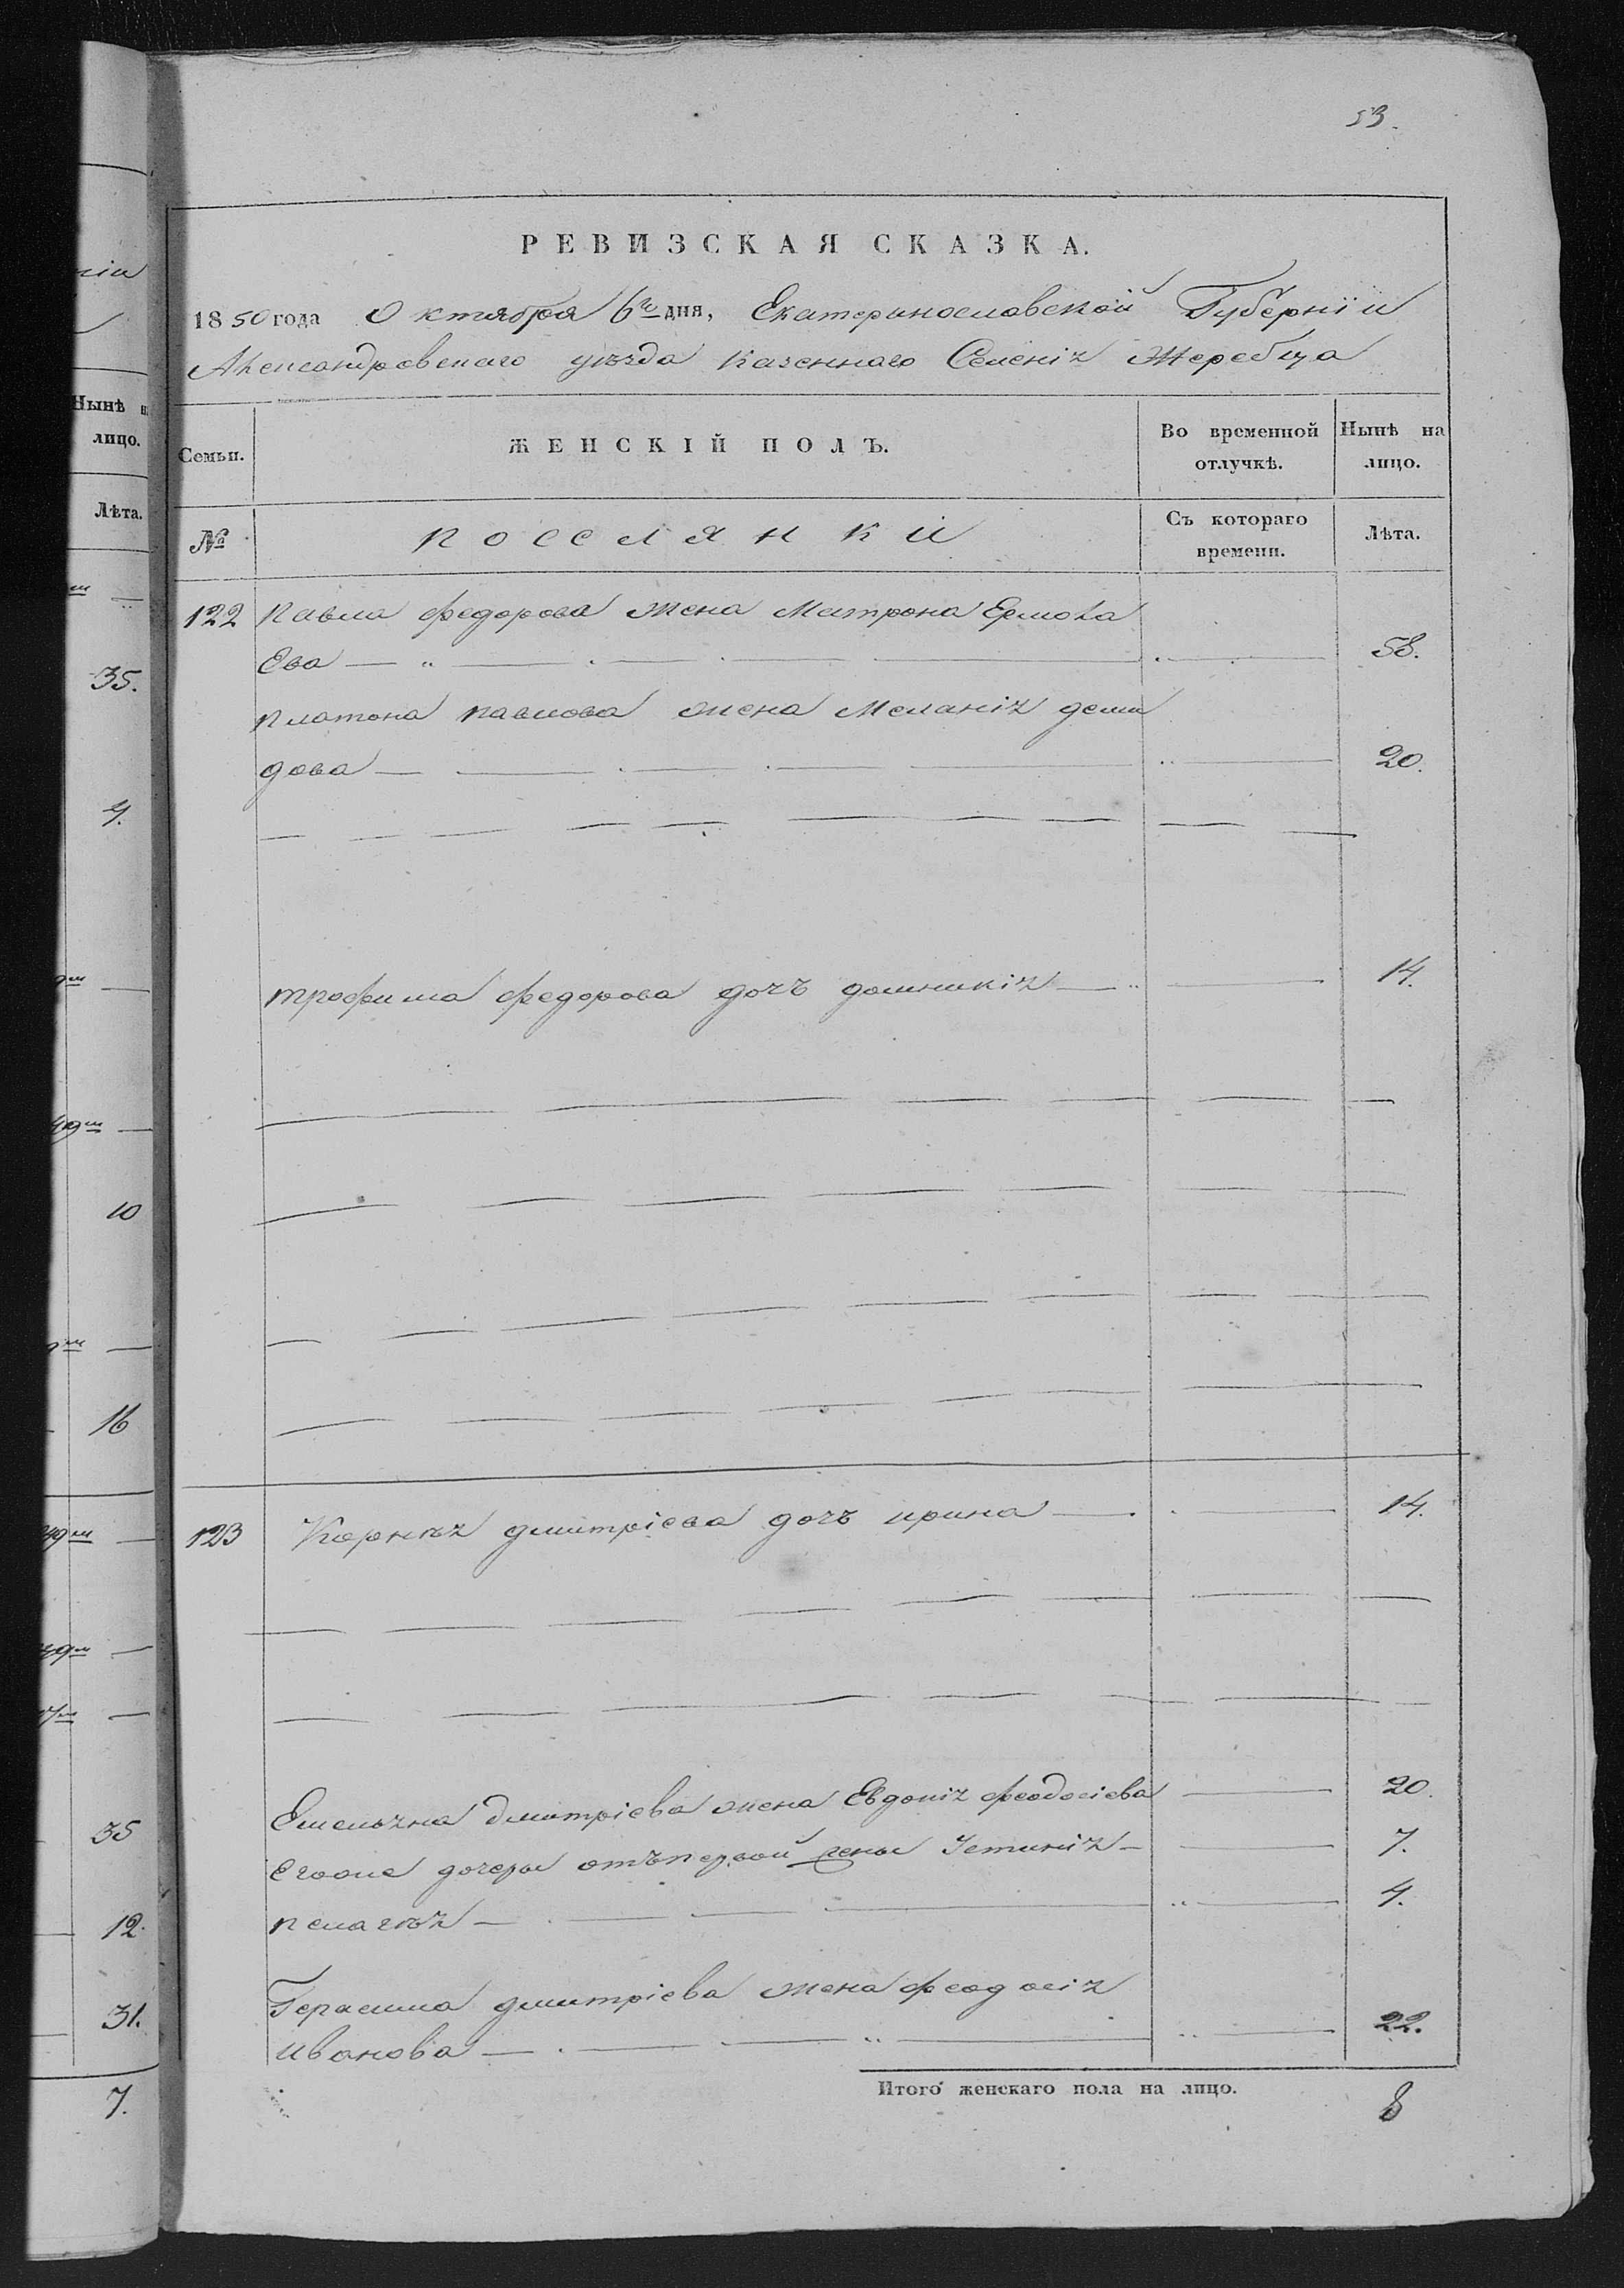 53.
РЕВИЗСКАЯ СКАЗКА.
1850 года Октября 6го дня, Екатеринославской Губерніи
Александровскаго уѣзда Казеннаго Селенія Жеребца
Семьи. ЖЕНСКІЙ ПОЛЪ. Во временной отлучкѣ. Нынѣ на лицо.
№ поселянки Съ котораго времени. Лѣта.
122 Павла Федорова жена Матрона Ермола
Ева — 58.
платона павлова жена Меланія деми
дова — 20.
трофима федорова дочь домникія — 14.
123 Корнѣя дмитріева дочь ирина — 14.
Емельяна Дмитріева жена Евдокія феодосіева — 20.
Егооне дочеры отъпервой жены Устинія — 7.
пелагѣя — 4.
Герасима дмитріева жена феодосія
иванова — 22.
Итого женскаго пола на лицо. 8
ніи
Нынѣ на
лицо.
Лѣта.
35.
4.
10
16
35
12.
31.
7.